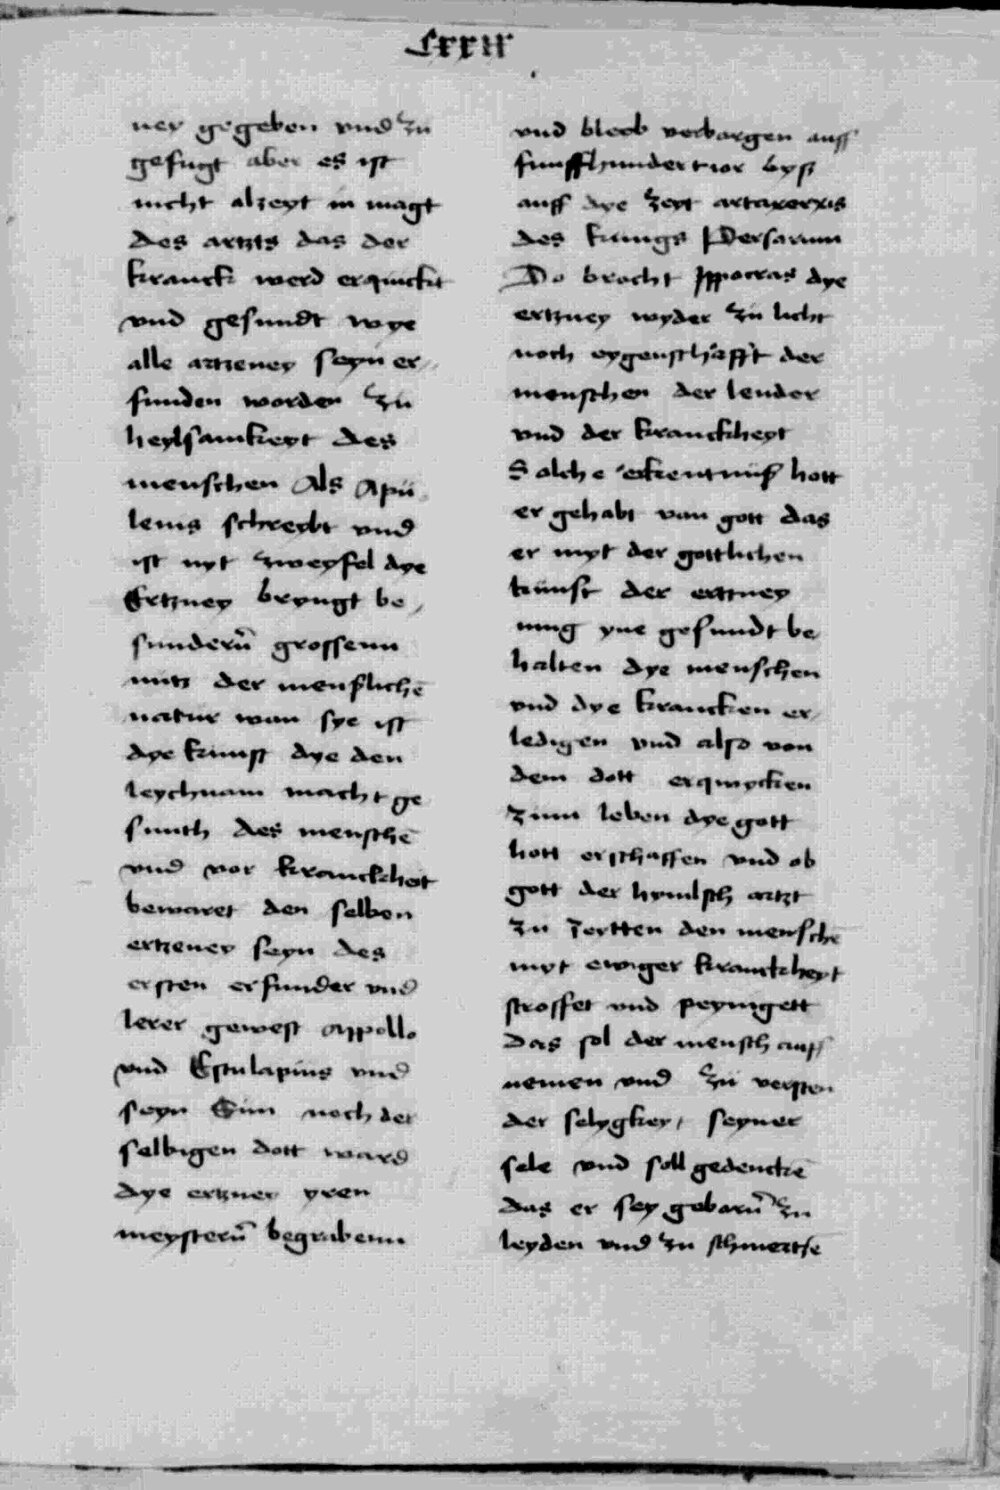 Lxxii
ney gegeben vnd zu
gefugt aber es ist
nicht alzeyt in magt
des artzts das der
kranck werd erquickt
vnd gesundt wye
alle artzeney seyn er¬
funden worden zu
heylsamkeyt des
menschen Als Apu¬
leius schreybt vnd
ist nyt zweyfel dye
Ertzney bryngt be¬
sunderñ grossenn
nutz der menslichē
natur wan sye ist
dye kunst dye den
leychnam macht ge
sunth des menschē
vnd vor kranckheit
bewaret den selben
ertzeney seyn des
ersten erfunder vnd
lerer gewest Appollo
vnd Esculapius vnd
seyn Sun noch der
selbigen dott ward
dye ertzney yren
meysterñ begrabenn
vnd bleeb verborgen auff
funffhundert ior byß
auff dye zeyt artaxerxis
des kunigs Persarum
Do brocht Jppocras dye
ertzney wyder zu licht
noch eygenschafft der
menschen der lender
vnd der kranckheyt
Solche erkentnuß hott
er gehabt von gott das
er myt der gottlichen
kunst der ertzney
mug yne gesundt be¬
halten dye menschen
vnd dye krancken er¬
ledigen vnd also von
dem dott erqwycken
zum leben dye gott
hott erschaffen vnd ob
gott der hymlsch artzt
zu zeytten den menschē
myt ewiger kranckheyt
stroffet vnd peynigett
Das sol der mensch auff
nemen vnd zu versten
der selygkeyt seyner
sele vnd soll gedenckē
das er sey geborñ zu
leyden vnd zu schmertzē